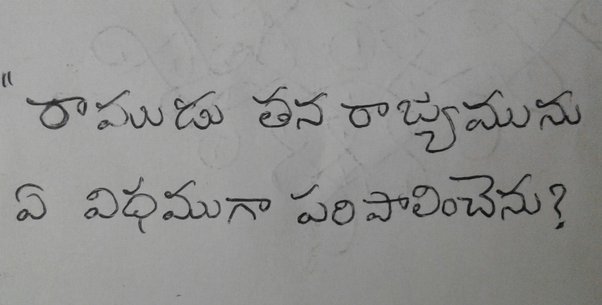 "రాముడు తన రాజ్యమును
ఏ విధముగా పరిపాలించెను?